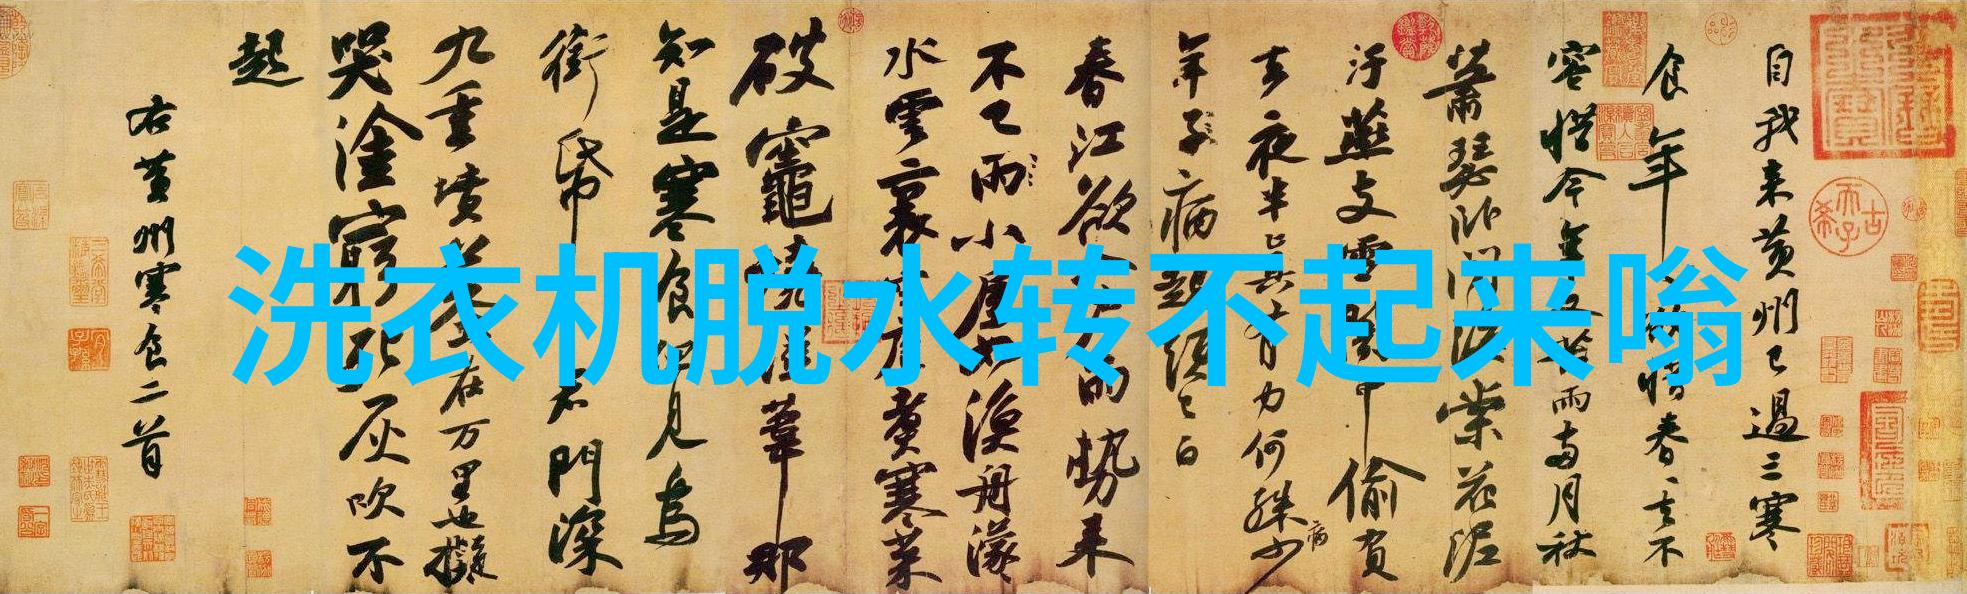 自我来黄州已過三寒
食年年欲惜春春去不
容惜今年又苦雨兩月秋
蕭瑟卧聞海棠花泥
汙燕支雪闇中偷負
去夜半真有力何殊少
年子病起須已白
春江欲入户雨勢来
不已雨小屋如漁舟濛
水雲裏空庖煮寒菜
破竈燒濕葦那
知是寒食但見烏
銜帋君門深
九重墳墓在万里也擬
哭塗窮死灰吹不
起
右黄州寒食二首
洗衣机脱水转不起来嗡